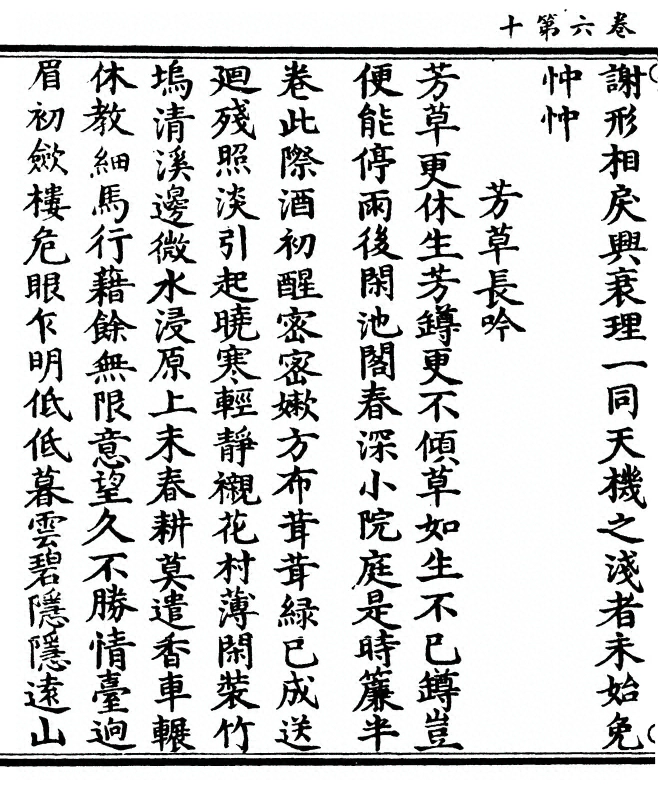 卷六第十
謝形相戾興衰理一同天機之淺者未始免
忡忡
芳草長吟
芳草更休生芳鐏更不傾草如生不已鐏豈
便能停雨後閑池閣春深小院庭是時簾半
卷此際酒初醒密密嫩方布茸茸緑已成送
迴殘照淡引起曉寒輕靜襯花村薄閑裝竹
塢清溪邊微水浸原上末春耕莫遣香車輾
休教細馬行藉餘無限意望久不勝情臺迥
眉初斂樓危眼乍明低低暮雲碧隱隱遠山